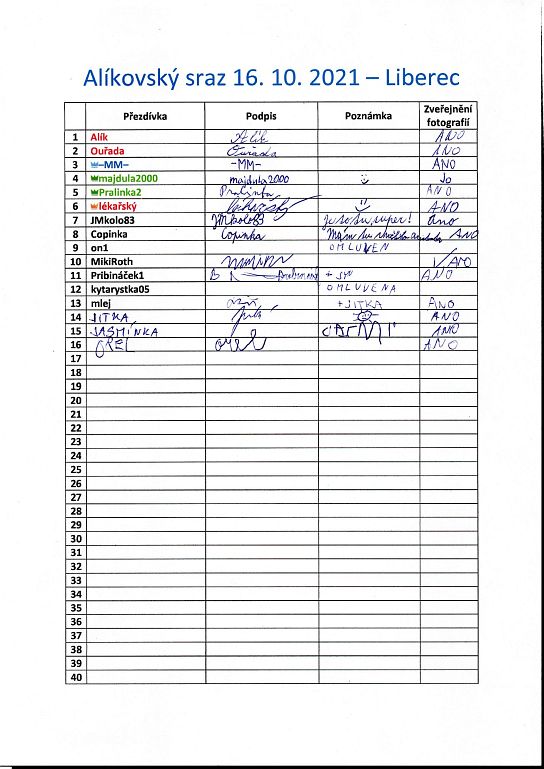 Alíkovský sraz 16. 10. 2021 – Liberec
Přezdívka Podpis Poznámka Zveřejnění fotografií
1 Alík Alík ANO
2 Ouřada Ouřada ANO
3 –MM– –MM– ANO
4 majdula2000 majdula2000 :) Jo
5 Pralinka2 Pralinka ANO
6 lékařský :) ANO
7 JMkolo83 JMkolo83 Je to tu super! Ano
8 Copinka Copinka Mám tu ANO
9 on1 OMLUVEN
10 MikiRoth ANO
11 Pribináček1 + SYN ANO
12 kytarystka05 OMLUVENA
13 mlej +JITKA ANO
14 JITKA ANO
15 JASMÍNKA ANO
16 OREL orel ANO
17
18
19
20
21
22
23
24
25
26
27
28
29
30
31
32
33
34
35
36
37
38
39
40